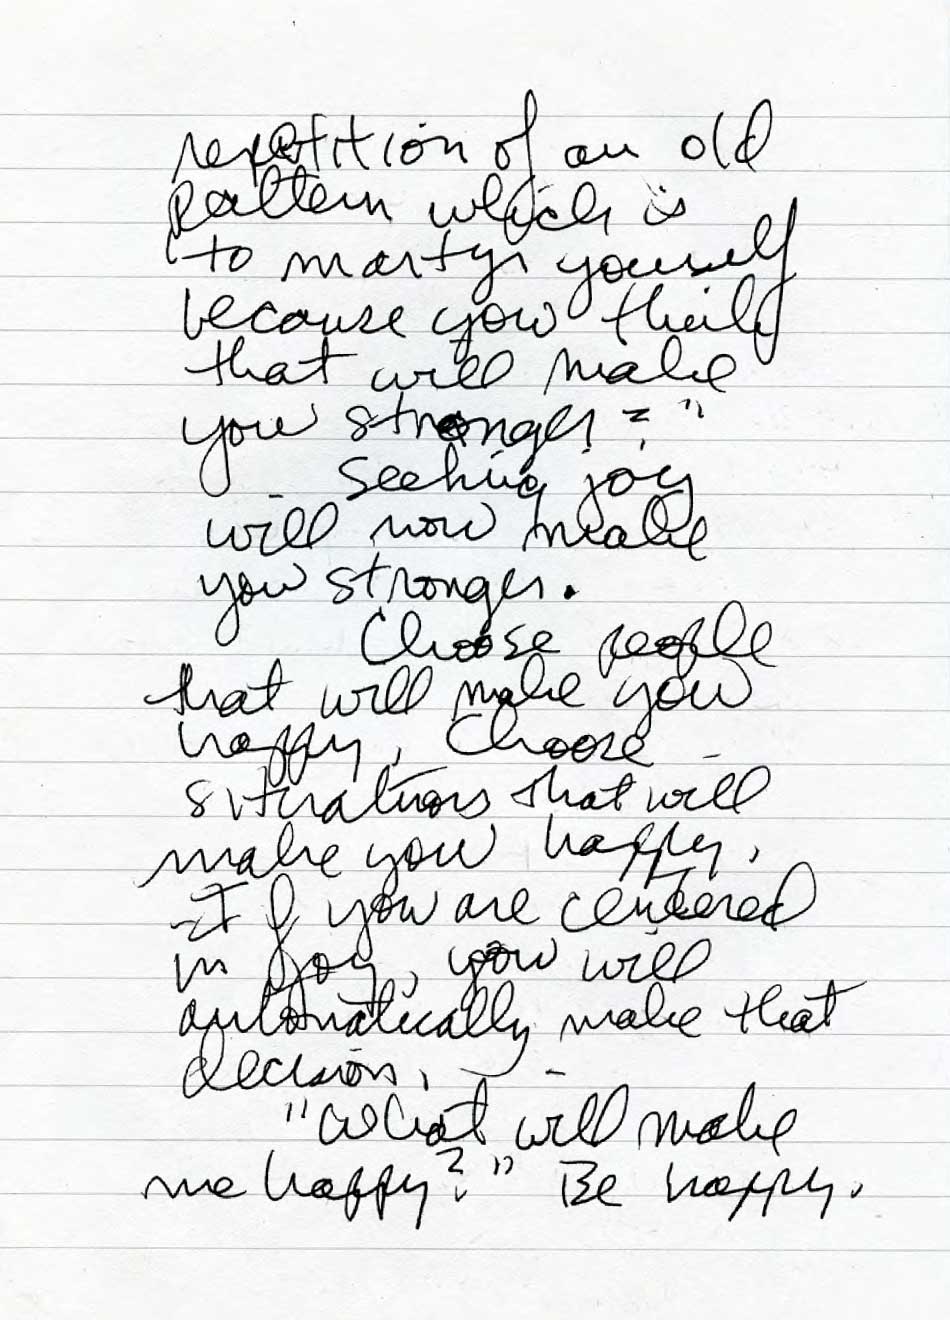 repetition of an old
pattern which is
to martyr yourself
because you think
that will make
you stronger?"
Seeking joy
will now make
you stronger.
Choose people
that will make you
happy, Choose
situations that will
make you happy,
If you are centered
in joy, you will
automatically make that
decision,
"What will make
me happy?" Be happy.